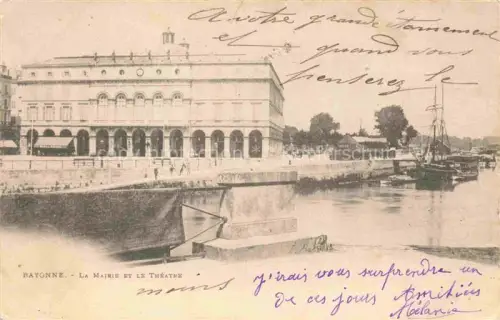 A votre grande étonnement
et quand vous
penserez le
BAYONNE. - LA MAIRIE ET LE THÉATRE
moins
j'irais vous surprendre un
de ces jours Amitiés
Mélanie